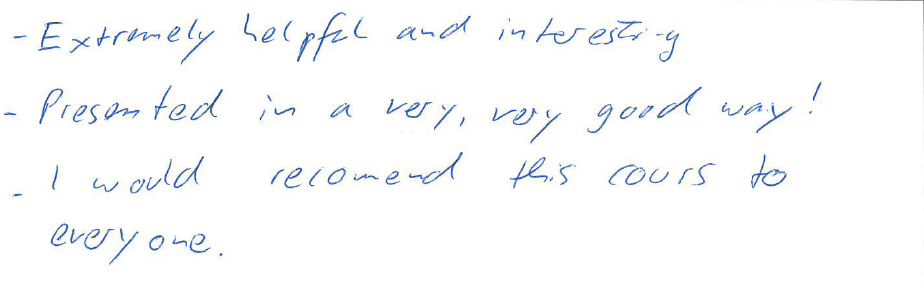 - Extremely helpful and interesting
- Presented in a very, very good way!
- I would recomend this cours to
everyone.